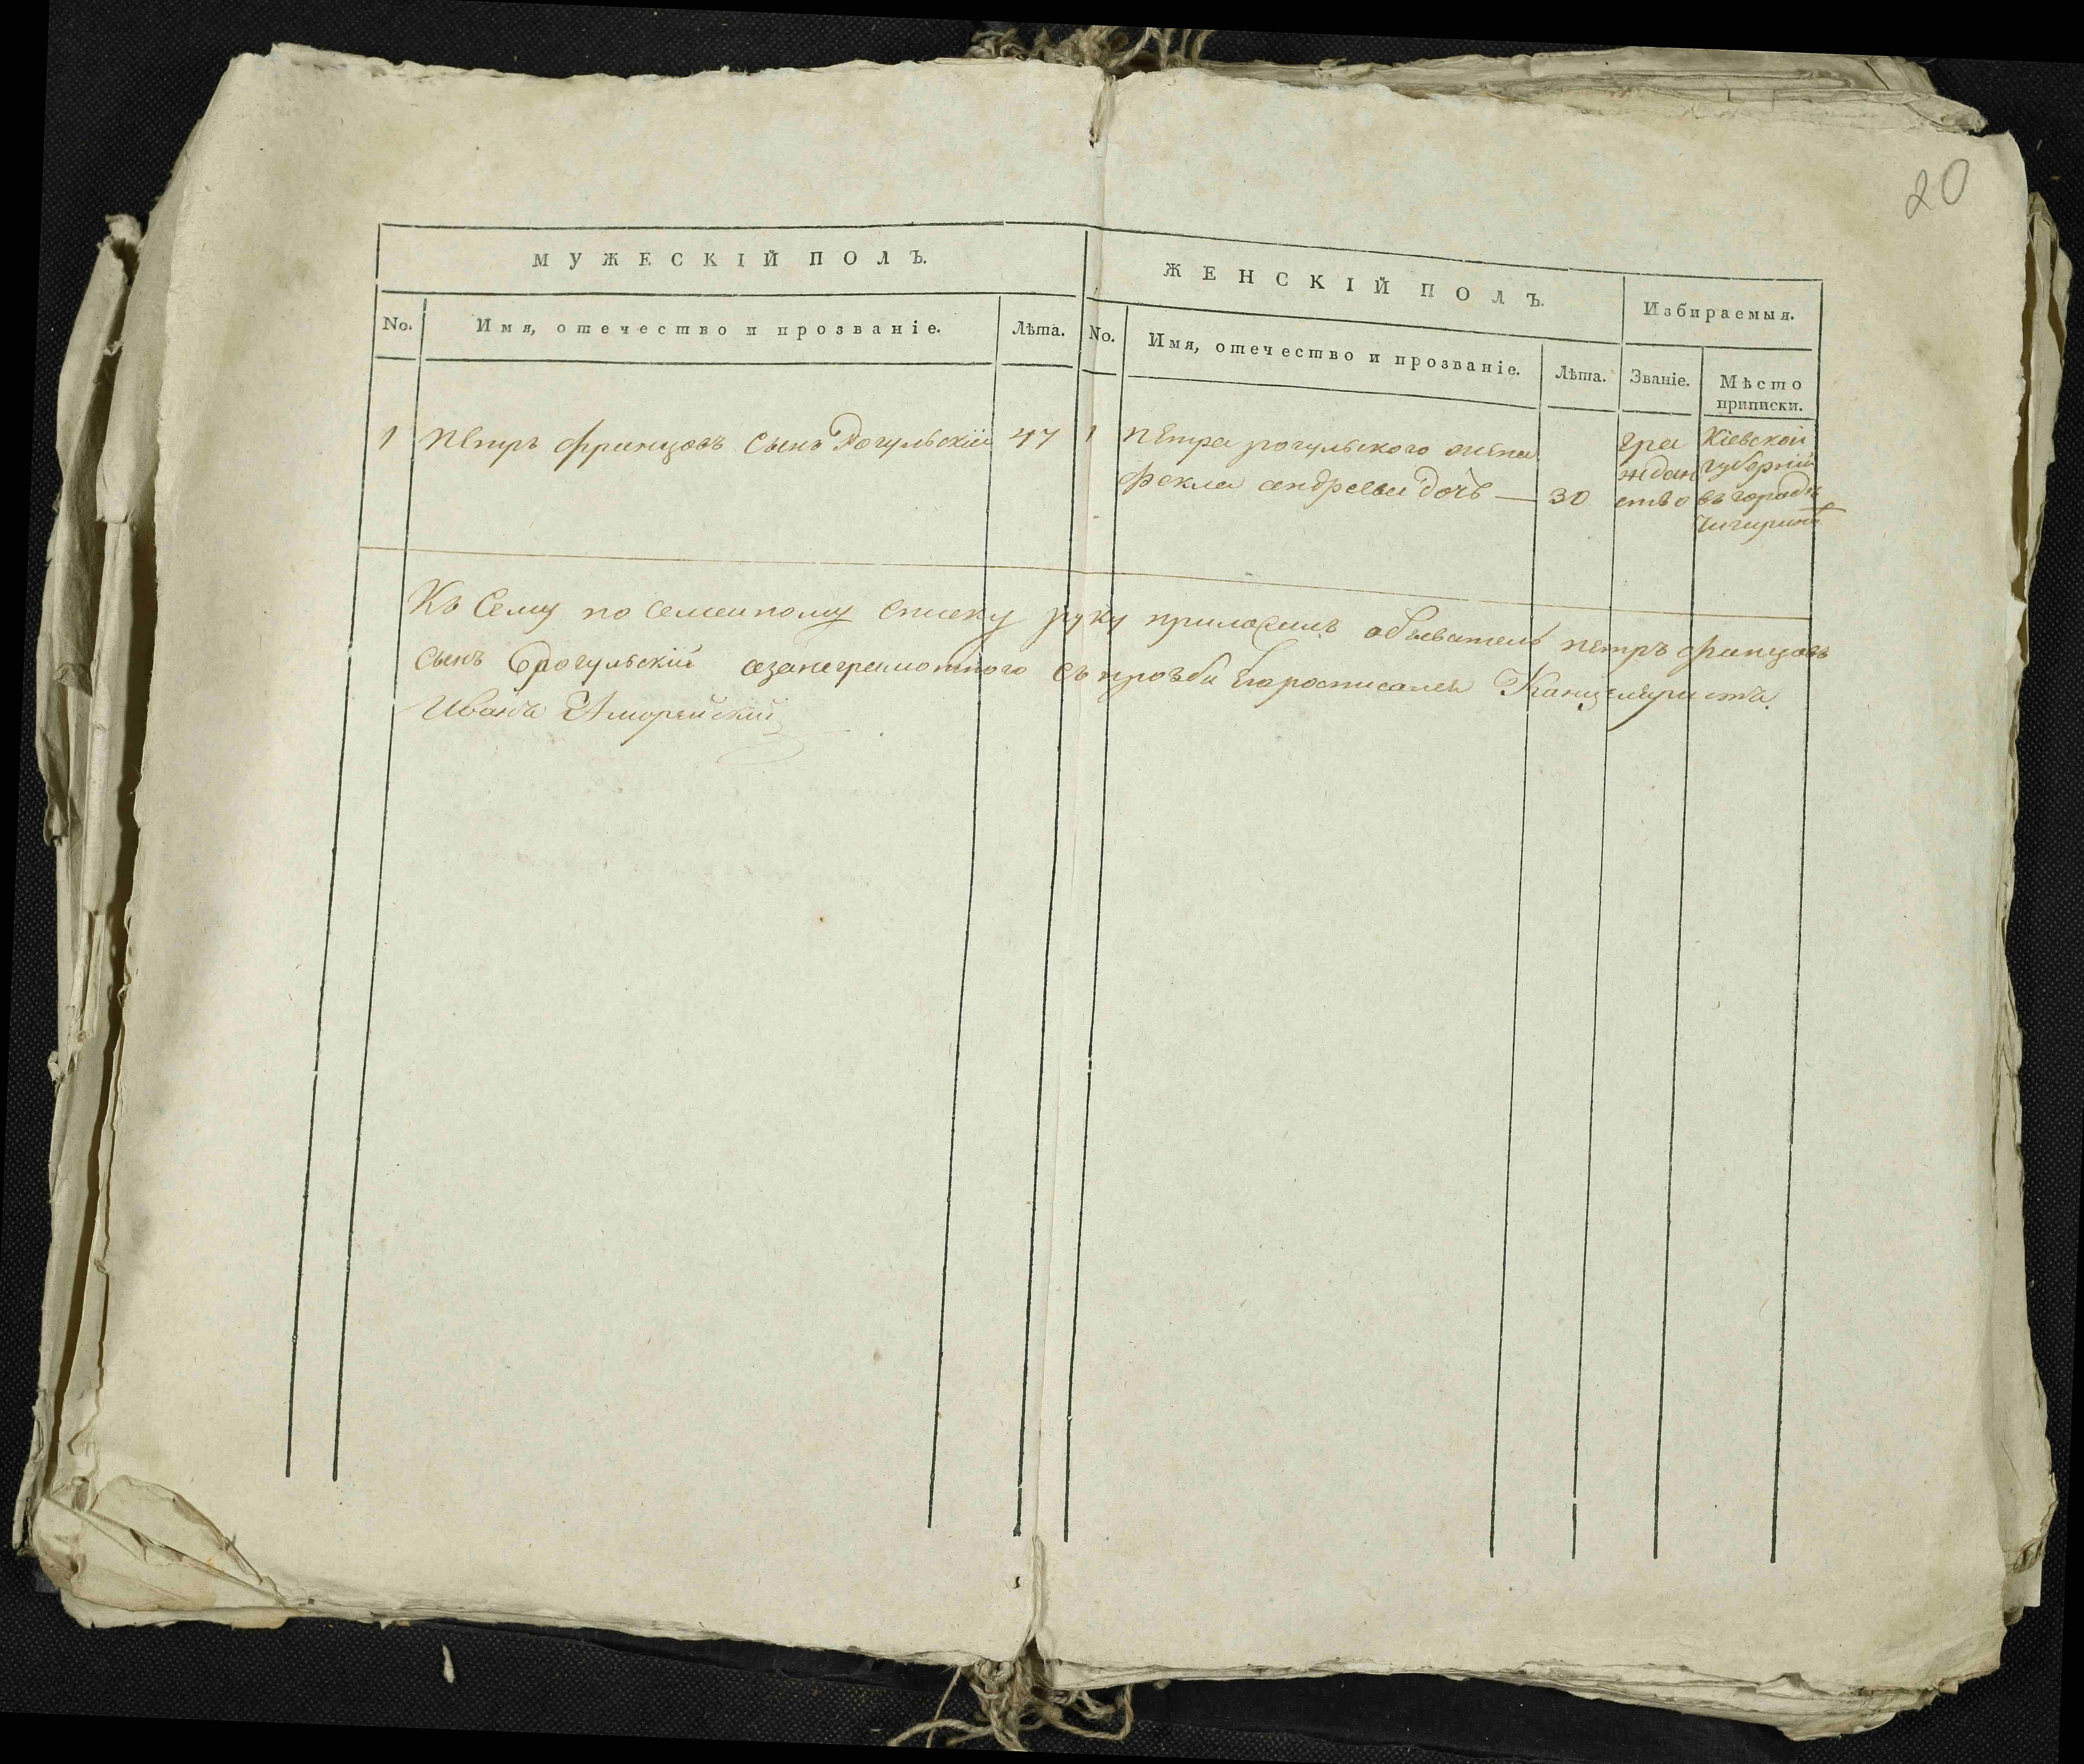 20
МУЖЕСКІЙ ПОЛЪ.
ЖЕНСКІЙ ПОЛЪ.
Избираемыя.
No.
Имя, отечество и прозваніе.
Лѣта.
No.
Имя, отечество и прозваніе.
Лѣта.
Званіе.
Мѣсто
приписки.
1 Петръ Францовъ сынъ Рогульскій 47
1 Петра рогульского жена
Фекла андреева дочь — 30
гра
ждан
ство
Кіевской
губерніи
въ городѣ
Чигиринѣ
Къ Сему посемейному списку руку приложилъ обыватель петръ францовъ
сынъ рогульскій азанеграмотного съ прозби Его росписался Канцеляристъ
Иванъ